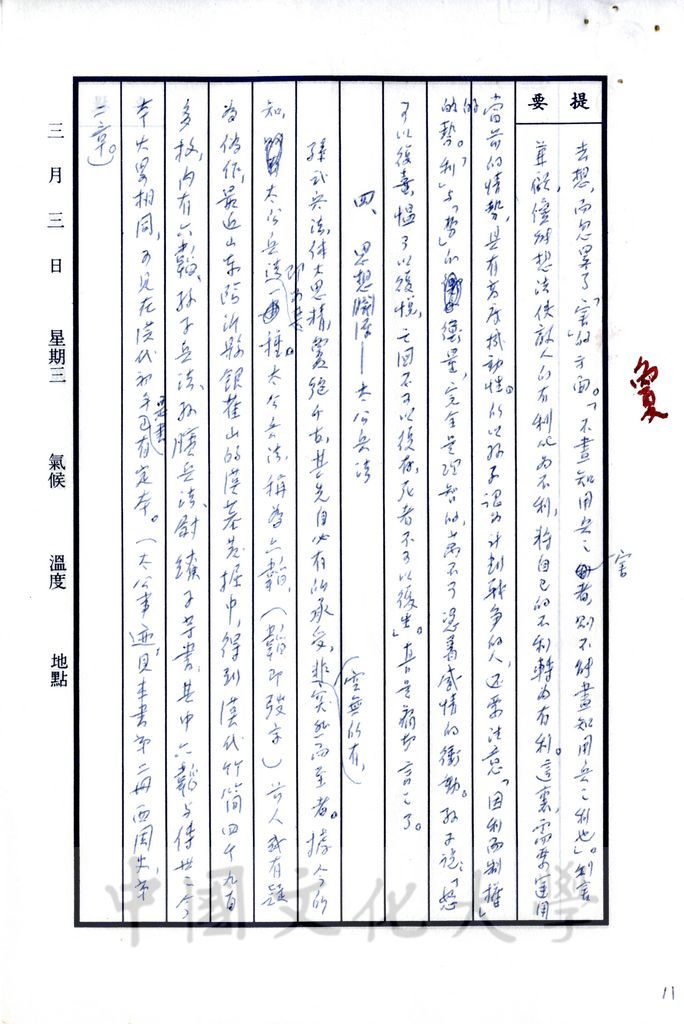 提要
去想，而忽略了「害」的方面。「不盡知用兵之害者，則不能盡知用兵之利也」。利害
兼顧，僅能想法使敵人的有利化為不利，將自己的不利轉為有利。這裏，需要運用
當前的情勢，具有高度機動性。所以孫子認為計劃戰爭的人，還要注意「因利而制權」
的勢。「利」與「勢」的衡量，完全是理智的，萬不可憑著感情的衝動。孫子說：「怒
可以復喜，慍可以復悅，亡國不可以復存，死者不可以復生」。真是痛切言之了。
四、思想淵源——太公兵法
孫武兵法，體大思精，冠絕千古，其先自必有所承受，非空無所有，突然而至者。據今所
知，即為太公兵法一種。太公兵法，稱為六韜，（韜即弢字）前人或有疑
為偽作，最近山東臨沂縣銀雀山的漢墓發掘中，得到漢代竹簡四千九百
多枚，內有六韜、孫子兵法、孫臏兵法、尉繚子等書，其中六韜與傳世之今
本大略相同，可見在漢代初年已有定本。（太公事迹，見本書第二冊西周史，第
二章。）
三月三日 星期三 氣候 溫度 地點
中國文化大學
11